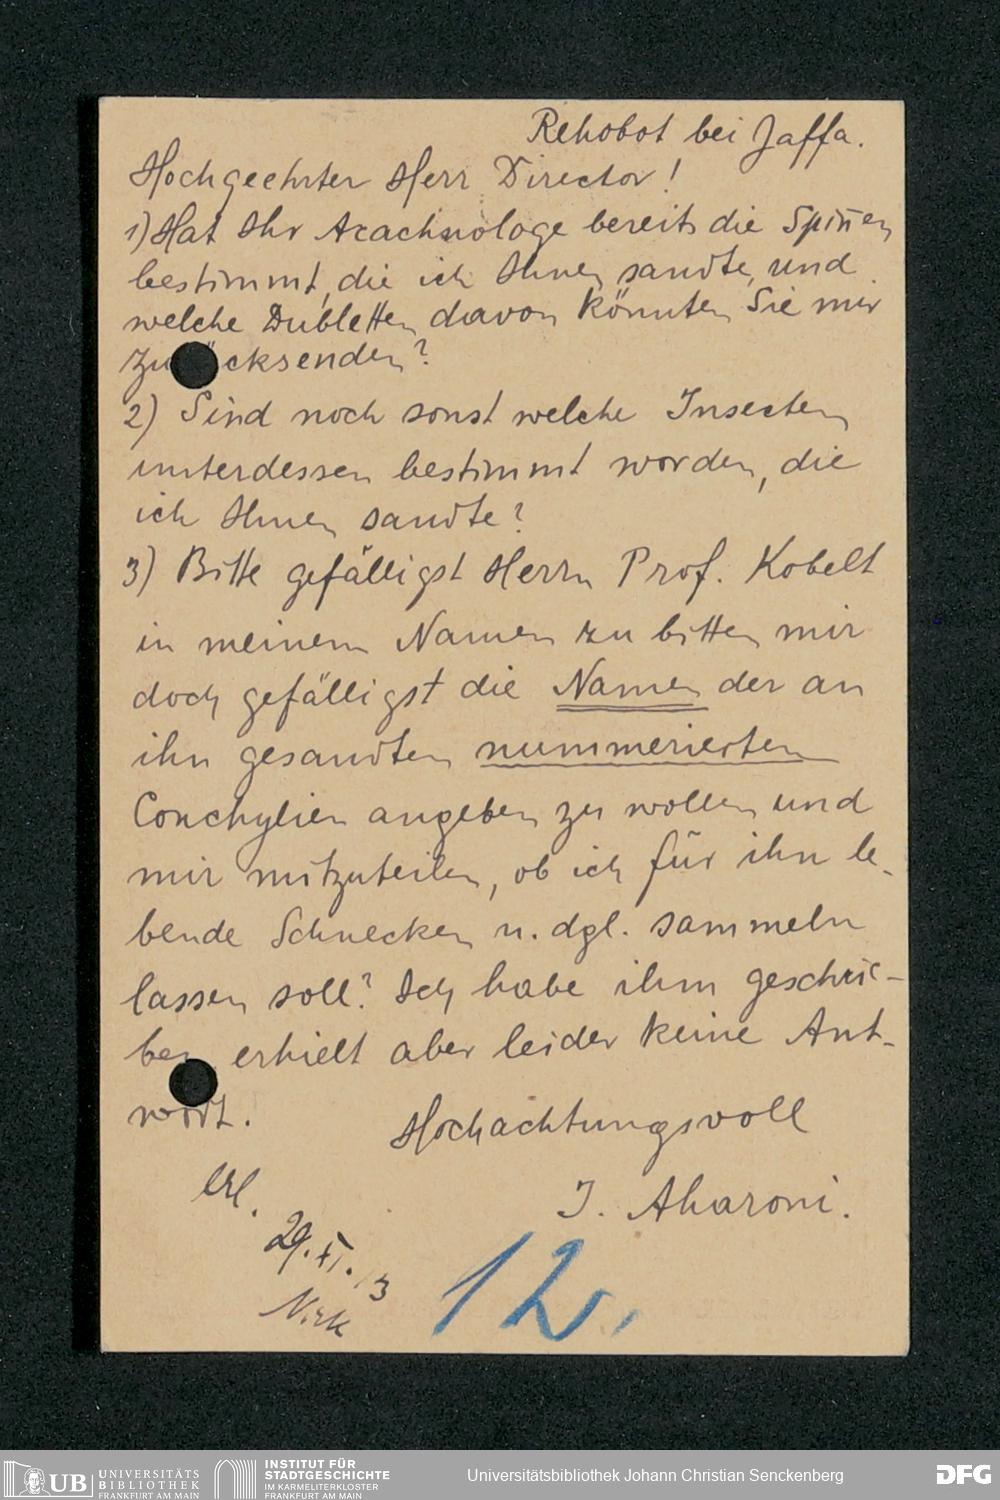 Rehobot bei Jaffa.
Hochgeehrter Herr Director!
1) Hat Ihr Arachnologe bereits die Spin̄en
bestimmt, die ich Ihnen sandte, und
welche Dubletten davon könnten Sie mir
zurücksenden?
2) Sind noch sonst welche Insecten
unterdessen bestimmt worden, die
ich Ihnen sandte?
3) Bitte gefälligst Herrn Prof. Kobelt
in meinem Namen zu bitten mir
doch gefälligst die Namen der an
ihn gesandten nummerierten
Conchylien angeben zu wollen und
mir mitzuteilen, ob ich für ihn le-
bende Schnecken u. dgl. sammeln
lassen soll? Ich habe ihm geschrie-
ben erhielt aber leider keine Ant-
wort.
Hochachtungsvoll
J. Aharoni.
Erl.
29. XI. 13
12.
UB UNIVERSITÄTS
BIBLIOTHEK
FRANKFURT AM MAIN
INSTITUT FÜR
STADTGESCHICHTE
IM KARMELITERKLOSTER
FRANKFURT AM MAIN
Universitätsbibliothek Johann Christian Senckenberg
DFG